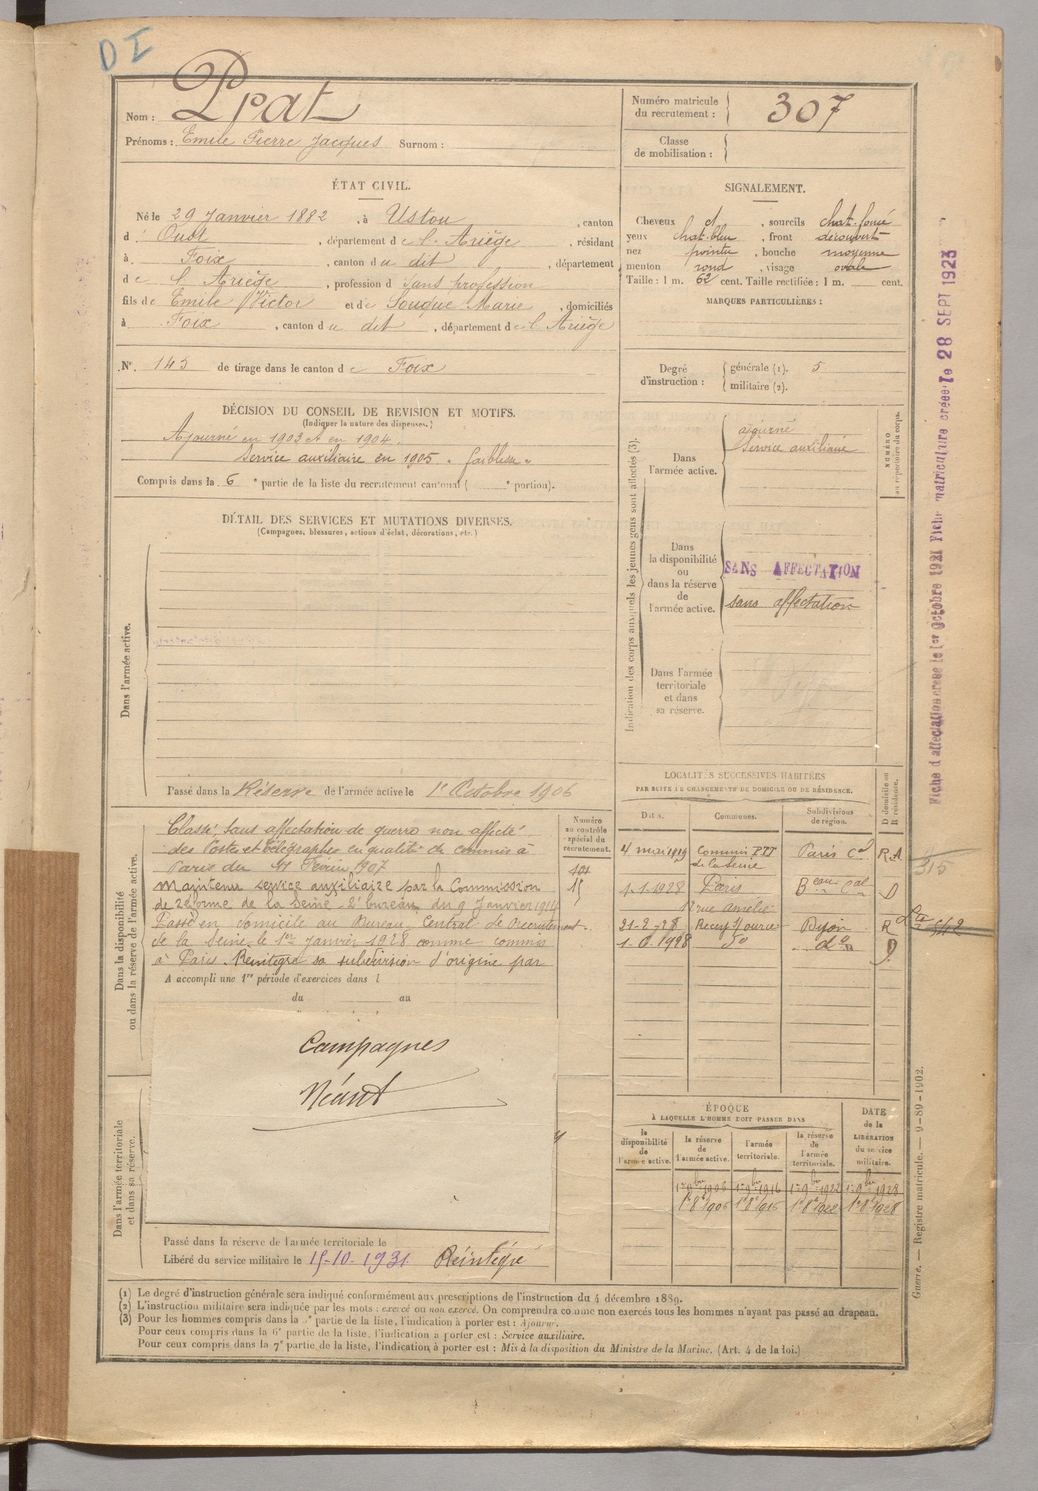 DI
Nom : Prat
Prénoms : Emile Pierre Jacques Surnom :
Numéro matricule du recrutement : 307
Classe de mobilisation :
ÉTAT CIVIL.
Né le 29 Janvier 1882, à Ustou, canton
d'Oust, département de l'Ariège, résidant
à Foix, canton du dit, département
de l'Ariège, profession d sans profession
fils de Emile Victor et de Souque Marie, domiciliés
à Foix, canton du dit, département de l'Ariège
N° 145 de tirage dans le canton de Foix
SIGNALEMENT.
Cheveux d, sourcils chat. foncé
yeux chat. bleu, front découvert
nez pointu, bouche moyenne
menton rond, visage ovale
Taille : 1 m. 62 cent. Taille rectifiée : 1 m. cent.
MARQUES PARTICULIÈRES :
Degré d'instruction : générale (1). 5
militaire (2).
DÉCISION DU CONSEIL DE REVISION ET MOTIFS.
(Indiquer la nature des dispenses.)
Ajourné en 1903 et en 1904.
Service auxiliaire en 1905 " faiblesse "
Compris dans la 6e partie de la liste du recrutement cantonal ( e portion).
DÉTAIL DES SERVICES ET MUTATIONS DIVERSES.
(Campagnes, blessures, actions d'éclat, décorations, etc.)
Dans l'armée active.
Passé dans la Réserve de l'armée active le 1er Octobre 1906
Indication des corps auxquels les jeunes gens sont affectés (3).
Dans l'armée active.
ajourné
Service auxiliaire
NUMÉRO au répertoire du corps.
Dans la disponibilité ou dans la réserve de l'armée active.
SANS AFFECTATION
sans affectation
Dans l'armée territoriale et dans sa réserve.
Fiche d'affectation créée le 1er Octobre 1921 Fiche matriculaire créée le 28 SEPT 1923
Dans la disponibilité ou dans la réserve de l'armée active.
Classé, sans affectation de guerre non affecté
des Postes et Télégraphes en qualité de commis à
Paris du 11 Février 1907
Maintenu service auxiliaire par la Commission
de réforme de la Seine 2e bureau du 9 Janvier 1914
Passé en domicile au Bureau Central de Recrutement
de la Seine le 1er Janvier 1928 comme commis
à Paris. Réintégré sa subdivision d'origine par
A accompli une 1re période d'exercices dans l
du au
Numéro au contrôle spécial du recrutement.
LOCALITÉS SUCCESSIVES HABITÉES
PAR SUITE DE CHANGEMENTS DE DOMICILE OU DE RÉSIDENCE.
Dates. Communes. Subdivisions de région. D domicile ou R résidence.
4 mai 1919 Commis PTT de la Seine Paris Cal R.A
1.1.1928 Paris Beau cal D
12 rue Amélie
21-2-28 Dijon R
1928 do do D
315
Campagnes
Néant
Dans l'armée territoriale et dans sa réserve.
Passé dans la réserve de l'armée territoriale le
Libéré du service militaire le 15-10-1931. Réintégré
ÉPOQUE
À LAQUELLE L'HOMME DOIT PASSER DANS
la disponibilité de l'armée active.
la réserve de l'armée active.
l'armée territoriale.
la réserve de l'armée territoriale.
DATE de la LIBÉRATION du service militaire.
1er 9bre 1906 1er 9bre 1916 1er 9bre 1922 1er 9bre 1928
1er 8bre 1906 1er 8bre 1916 1er 8bre 1922 1er 8bre 1928
(1) Le degré d'instruction générale sera indiqué conformément aux prescriptions de l'instruction du 4 décembre 1889.
(2) L'instruction militaire sera indiquée par les mots : exercé ou non exercé. On comprendra comme non exercés tous les hommes n'ayant pas passé au drapeau.
(3) Pour les hommes compris dans la 5e partie de la liste, l'indication à porter est : Ajourné.
Pour ceux compris dans la 6e partie de la liste, l'indication à porter est : Service auxiliaire.
Pour ceux compris dans la 7e partie de la liste, l'indication à porter est : Mis à la disposition du Ministre de la Marine. (Art. 4 de la loi.)
Guerre. — Registre matricule. — 9-89-1902.